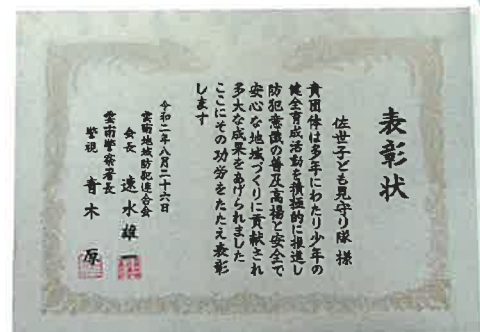 表彰状
佐世子ども見守り隊 様
貴団体は多年にわたり少年の
健全育成活動を積極的に推進し
防犯意識の普及高揚と安全で
安心な地域づくりに貢献され
多大な成果をあげられました
ここにその功労をたたえ表彰
します
令和二年八月二十六日
雲南地域防犯連合会
会長 速水雄一
雲南警察署長
警視 青木 原